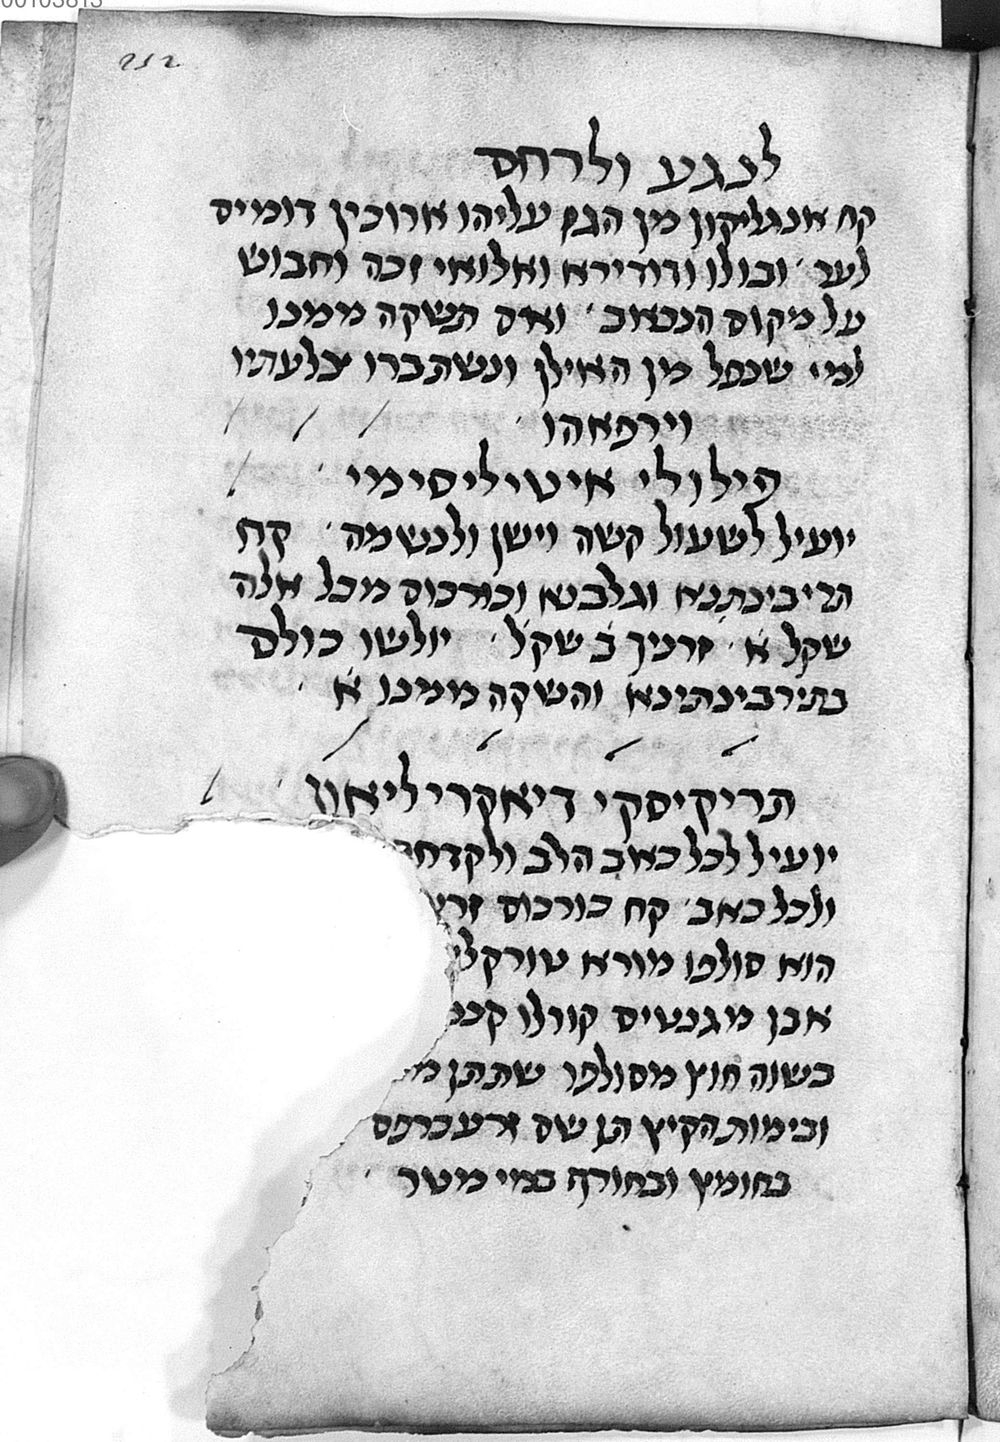 00103813
212
לנגע ולרחם
קח אנגליקון מן הגם עליהו ארוכין דומים
לער ׳ ובולו ודודירא ואלואי זכה וחבוש
על מקום הנכאוב ׳ ואם תשקה ממנו
למי שנפל מן האילן ונשתברו צלעתיו
וירפאהו
פילולי איטיליסימי ׳
יועיל לשעול קשה וישן ולנשמה ׳ קח
תריבינתנא וגלבטא וכורכוס מכל אלה
שקל א׳ זרניך ב שקל ׳ יולשו כולם
בתירבינתינא והשקה ממנו א ׳
תריקיסקי דיאקרי ליאון ׳
יועיל לכל כאב הלב ולקדחת
ולכל כאב ׳ קח כורכוס זרע
הוא סולפו מורא טורקל
אבן מגנטיס קורלו קנ
בשוה חוץ מסולפו שתתן מ
ובימות הקיץ תן שם זרע כרפס
בחומץ ובחורף במי מטר ׳